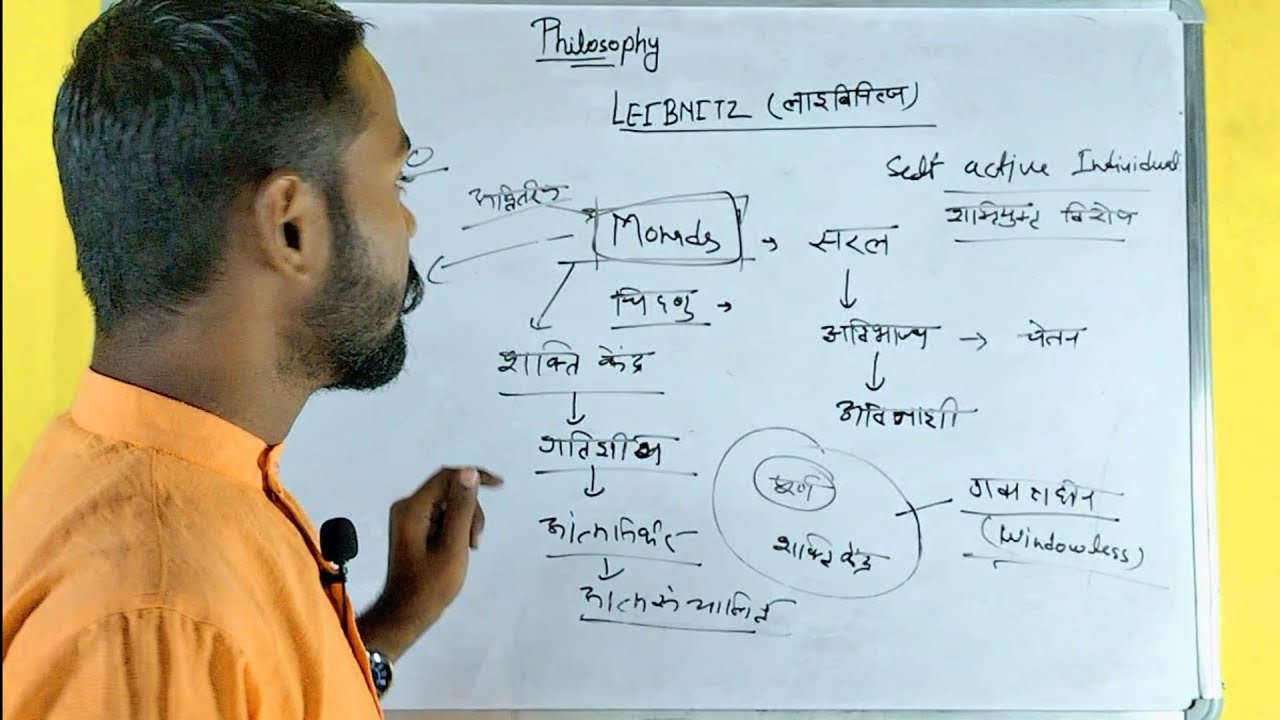 Philosophy
LEIBNITZ (लाइबिनित्ज)
Self active Individual
विशेष
Monads → सरल
चिदणु →
शक्ति केंद्र
अविभाज्य → चेतन
अविनाशी
गतिशील
पूर्ण
गवाक्षहीन
(Windowless)
आत्मनिर्भर
शक्ति केंद्र
आत्मसंचालित